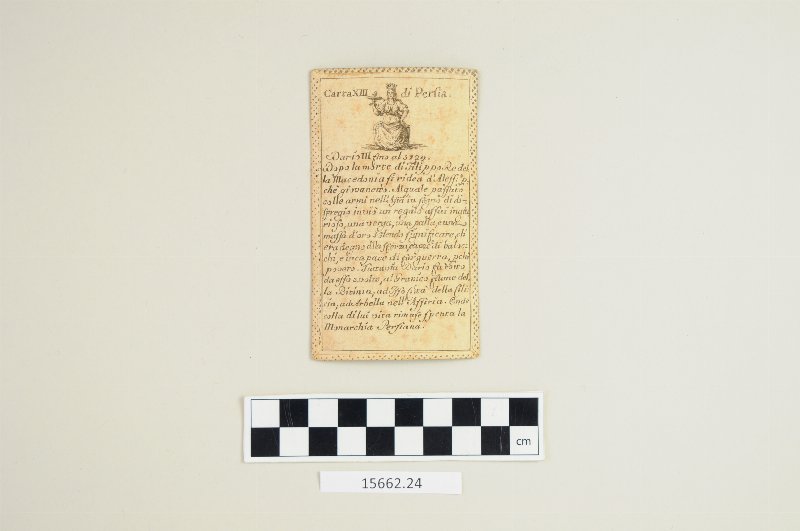 Carta XIII di Persia.
Dario III fino al 3729.
Dopo la morte di Filippo Re del
la Macedonia si ridea d'Aless: p
chè giovanetto. Al quale passato
colle armi nell'Asia in segno di di-
spregio inviò un regalo assai miste
rioso, una verga, una palla, e una
massa d'oro volendo significare, ch
era degno della sferza,
chi, e incapace di far guerra, pchè
povero. Dario fù vinto
da esso al Granico fiume del
la Bitinia, ad Isso città della Cili
cia, ad Arbella nell'Assiria. Onde
colla di lui vita rimase spenta la
Monarchia Persiana.
cm
15662.24